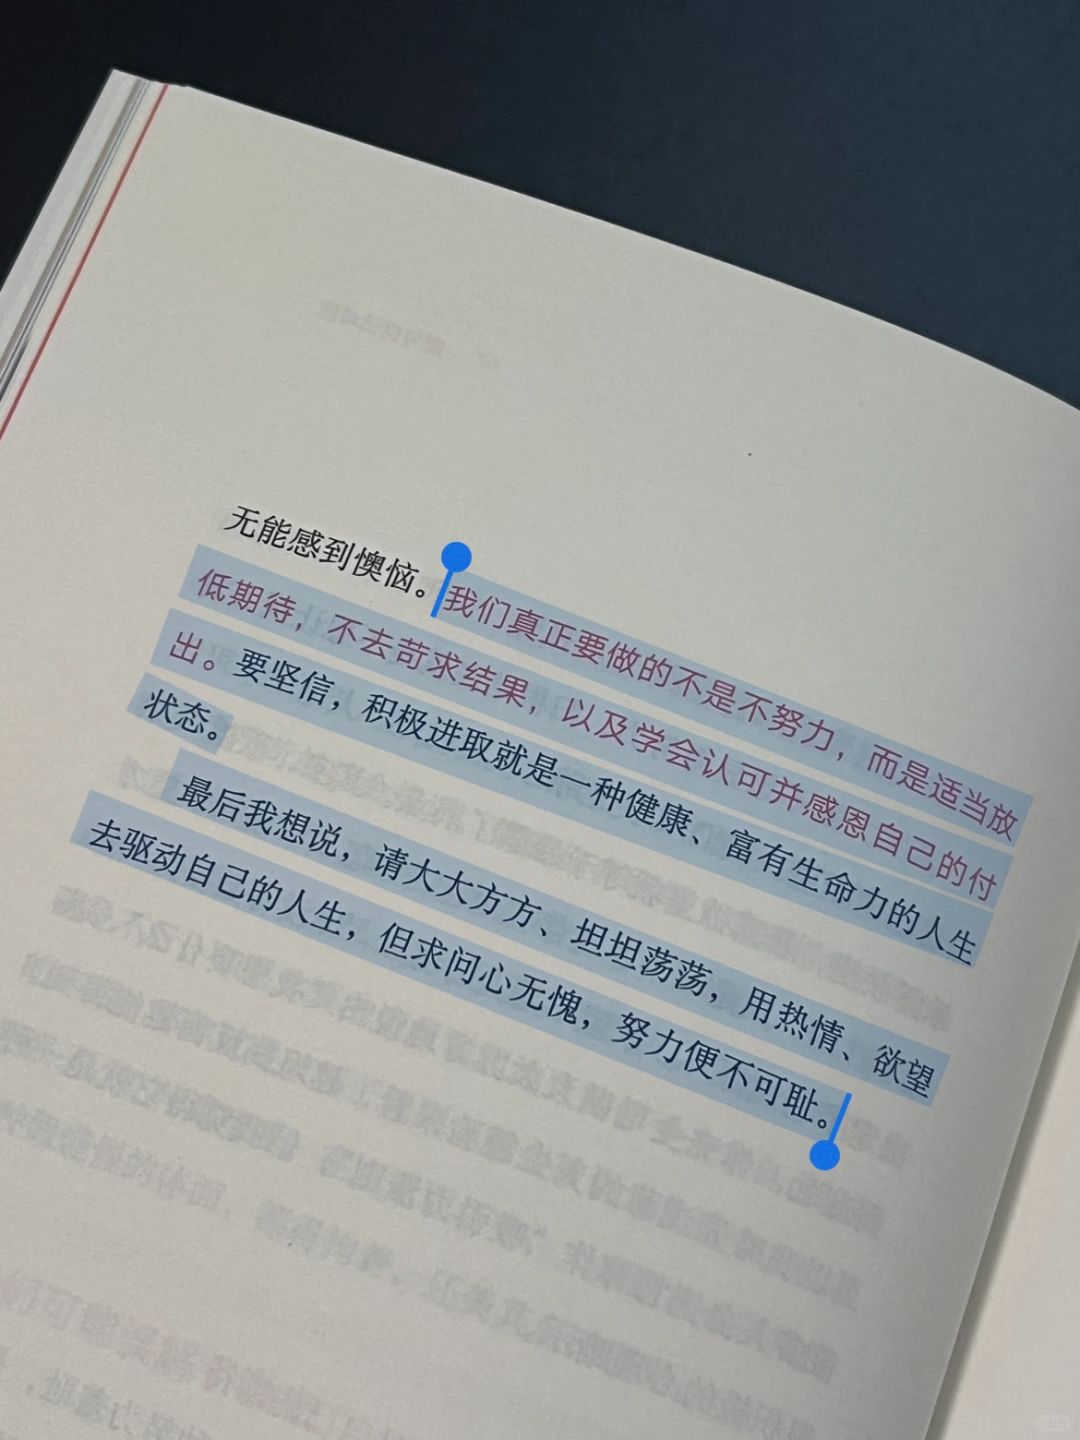 无能感到懊恼。我们真正要做的不是不努力，而是适当放
低期待，不去苛求结果，以及学会认可并感恩自己的付
出。要坚信，积极进取就是一种健康、富有生命力的人生
状态。
最后我想说，请大大方方、坦坦荡荡，用热情、欲望
去驱动自己的人生，但求问心无愧，努力便不可耻。